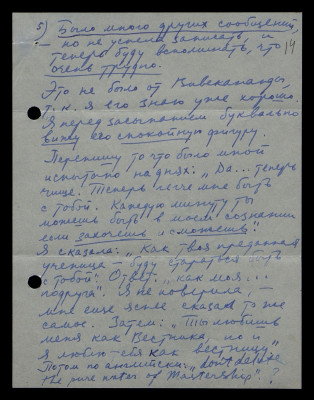 5) Было много других сообщений,
но не успела записать, и
теперь буду вспоминать, что 14
очень трудно.
Это не было от Вивекананды,
т.к. я его знаю уже хорошо.
Я перед засыпанием буквально
вижу его спокойную фигуру.
Перепишу то что было мной
испытано на днях: „Да... теперь
чище. Теперь легче мне быть
с тобой. Каждую минуту ты
можешь быть в моем сознании
если захочешь и сможешь".
Я сказала: „Как твоя преданная
ученица – буду стараться быть
с тобой". Ответ: „как моя...
подруга". Я не поверила, –
мне еще яснее сказали то же
самое. Затем: „Ты любишь
меня как Вестника, но и
я люблю тебя как вестницу"
Потом по английски: „don't
the pure of Mastership". ?